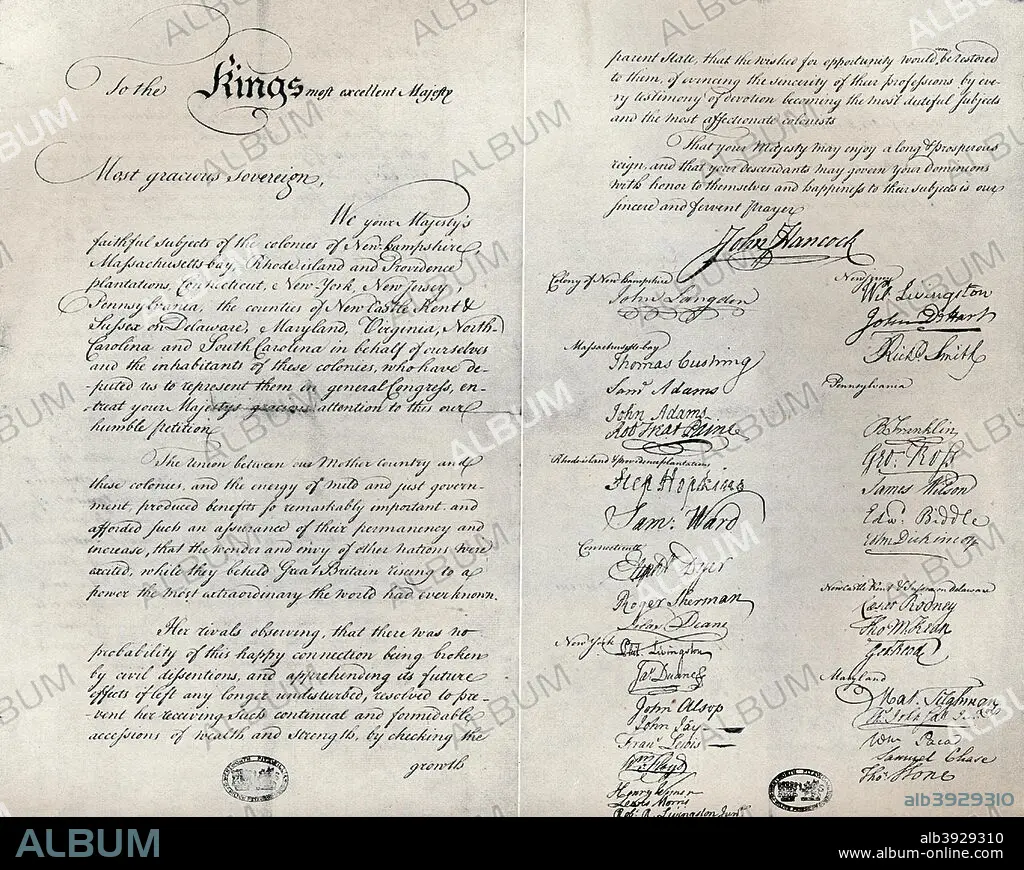 To the Kings most excellent Majesty
Most gracious Sovereign,
We your Majesty's
faithful subjects of the colonies of New-hampshire
Massachusetts-bay, Rhode island and Providence
plantations, Connecticut, New-York, New Jersey
Pennsylvania, the counties of New Castle Kent &
Sussex on Delaware, Maryland, Virginia, North-
Carolina and South Carolina in behalf of ourselves
and the inhabitants of these colonies, who have de-
-puted us to represent them in general Congress, en-
-treat your Majestys gracious attention to this our
humble petition
The union between our Mother Country and
these colonies, and the energy of mild and just govern-
ment, produced benefits so remarkably important and
afforded such an assurance of their permanency and
increase, that the wonder and envy of other nations were
excited, while they beheld Great Britain rising to a
power the most extraordinary the world had ever known.
Her rivals observing, that there was no
probability of this happy connection being broken
by civil dissentions, and apprehending its future
effects if left any longer undisturbed, resolved to pre-
-vent her receiving such continual and formidable
accessions of wealth and strength, by checking the
growth
parent State, that the wished for opportunity would soon be restored
to them, of evincing the sincerity of their professions by eve-
ry testimony of devotion becoming the most dutiful subjects
and the most affectionate colonists
That your Majesty may enjoy a long & prosperous
reign, and that your descendants may govern your Dominions
with honor to themselves and happiness to their subjects is our
sincere and fervent Prayer
John Hancock
Colony of New hampshire
John Langdon
Massachusetts-bay
Thomas Cushing
Saml Adams
John Adams
Robt Treat Paine
Rhode island & providence plantations
Step Hopkins
Sam: Ward
Connecticut
Elipht Dyer
Roger Sherman
Silas Deane
New York
Phil. Livingston
Jas Duane
John Alsop
John Jay
Frans Lewis
Wm Floyd
Henry Wisner
Lewis Morris
Robt R Livingston Junr
New Jersey
Wil. Livingston
John De Hart
Richd Smith
Pennsylvania
B Franklin
Geo: Ross
James Wilson
Edwd Biddle
Newcastle Kent & Sussex on delaware
Caesar Rodney
Tho M:Kean
Geo Read
Maryland
Mat. Tilghman
Wm Paca
Samuel Chase
Thos Stone
ALBUM
alb3929310
alb3929310
www.album-online.com